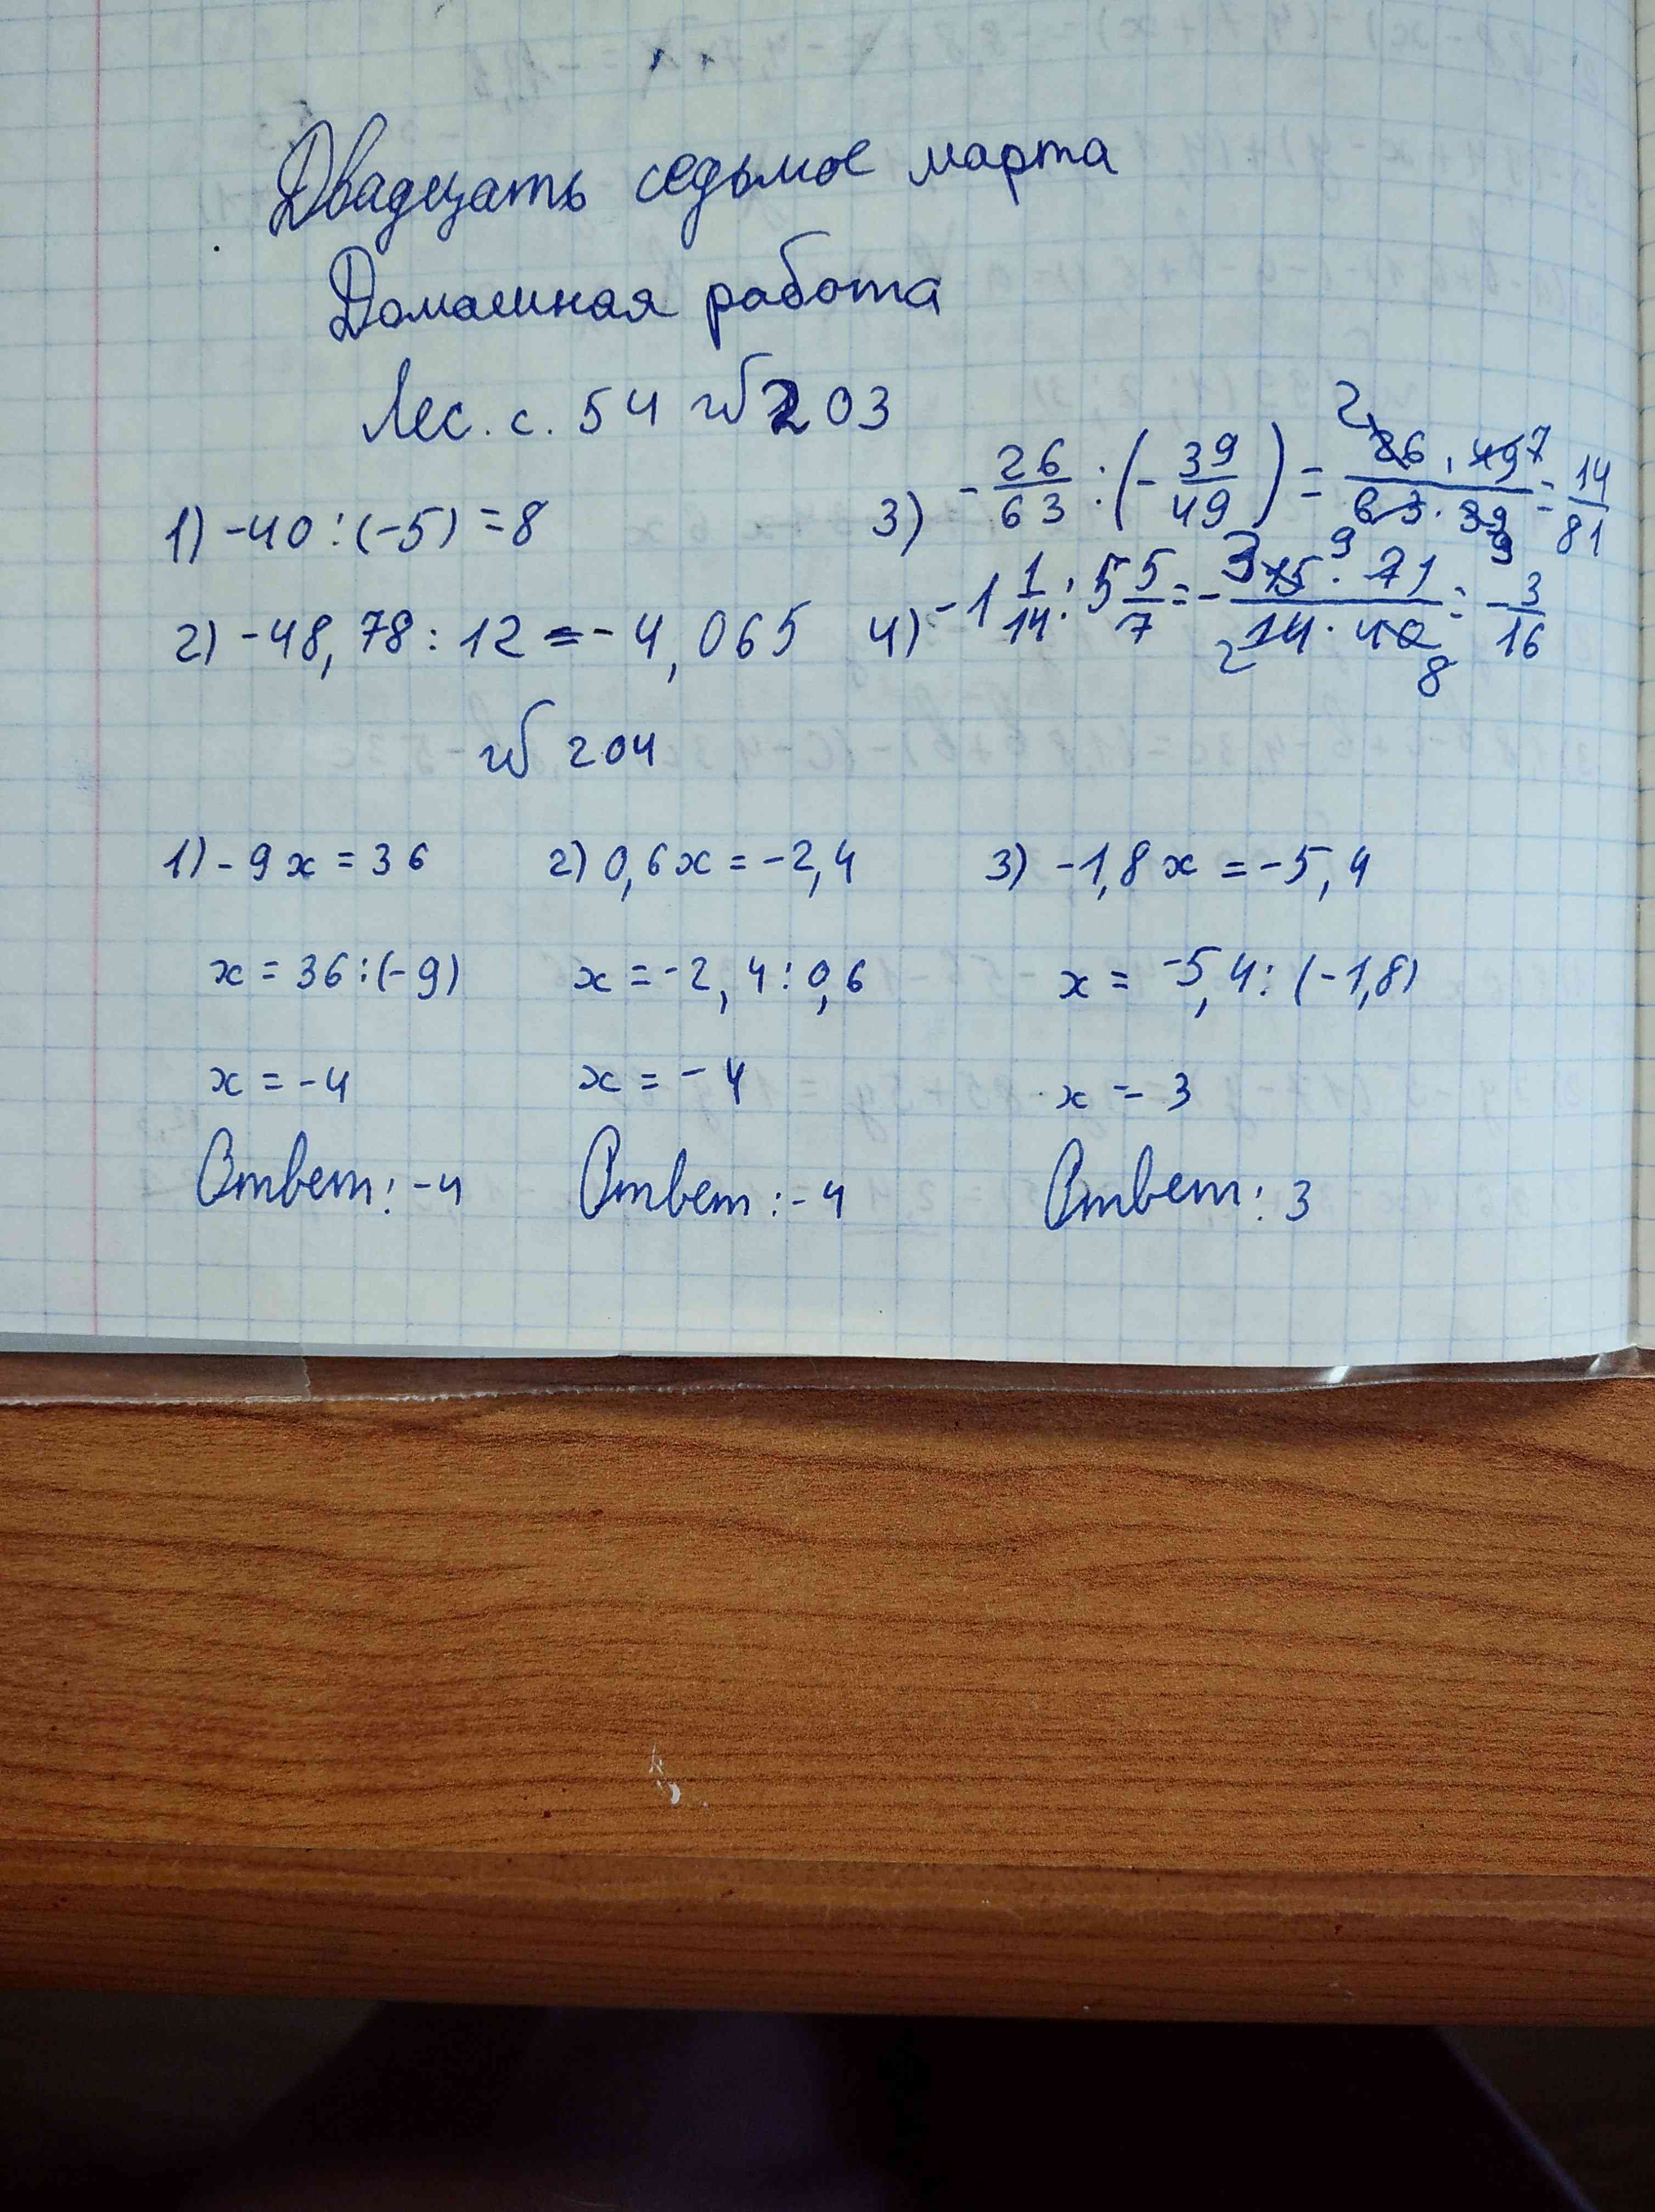 Двадцать седьмое марта
Домашная работа
Лес. с. 54 № 203
1) -40 : (-5) = 8
3) - 26/63 : (- 39/49) = 26 · 49 / 63 · 39 = 14/81
2) -48,78 : 12 = -4,065
4) -1 1/14 : 5 5/7 = - 15 · 7 / 14 · 40 = - 3/16
№ 204
1) -9x = 36 2) 0,6x = -2,4 3) -1,8x = -5,4
x = 36 : (-9) x = -2,4 : 0,6 x = -5,4 : (-1,8)
x = -4 x = -4 x = 3
Ответ: -4 Ответ: -4 Ответ: 3